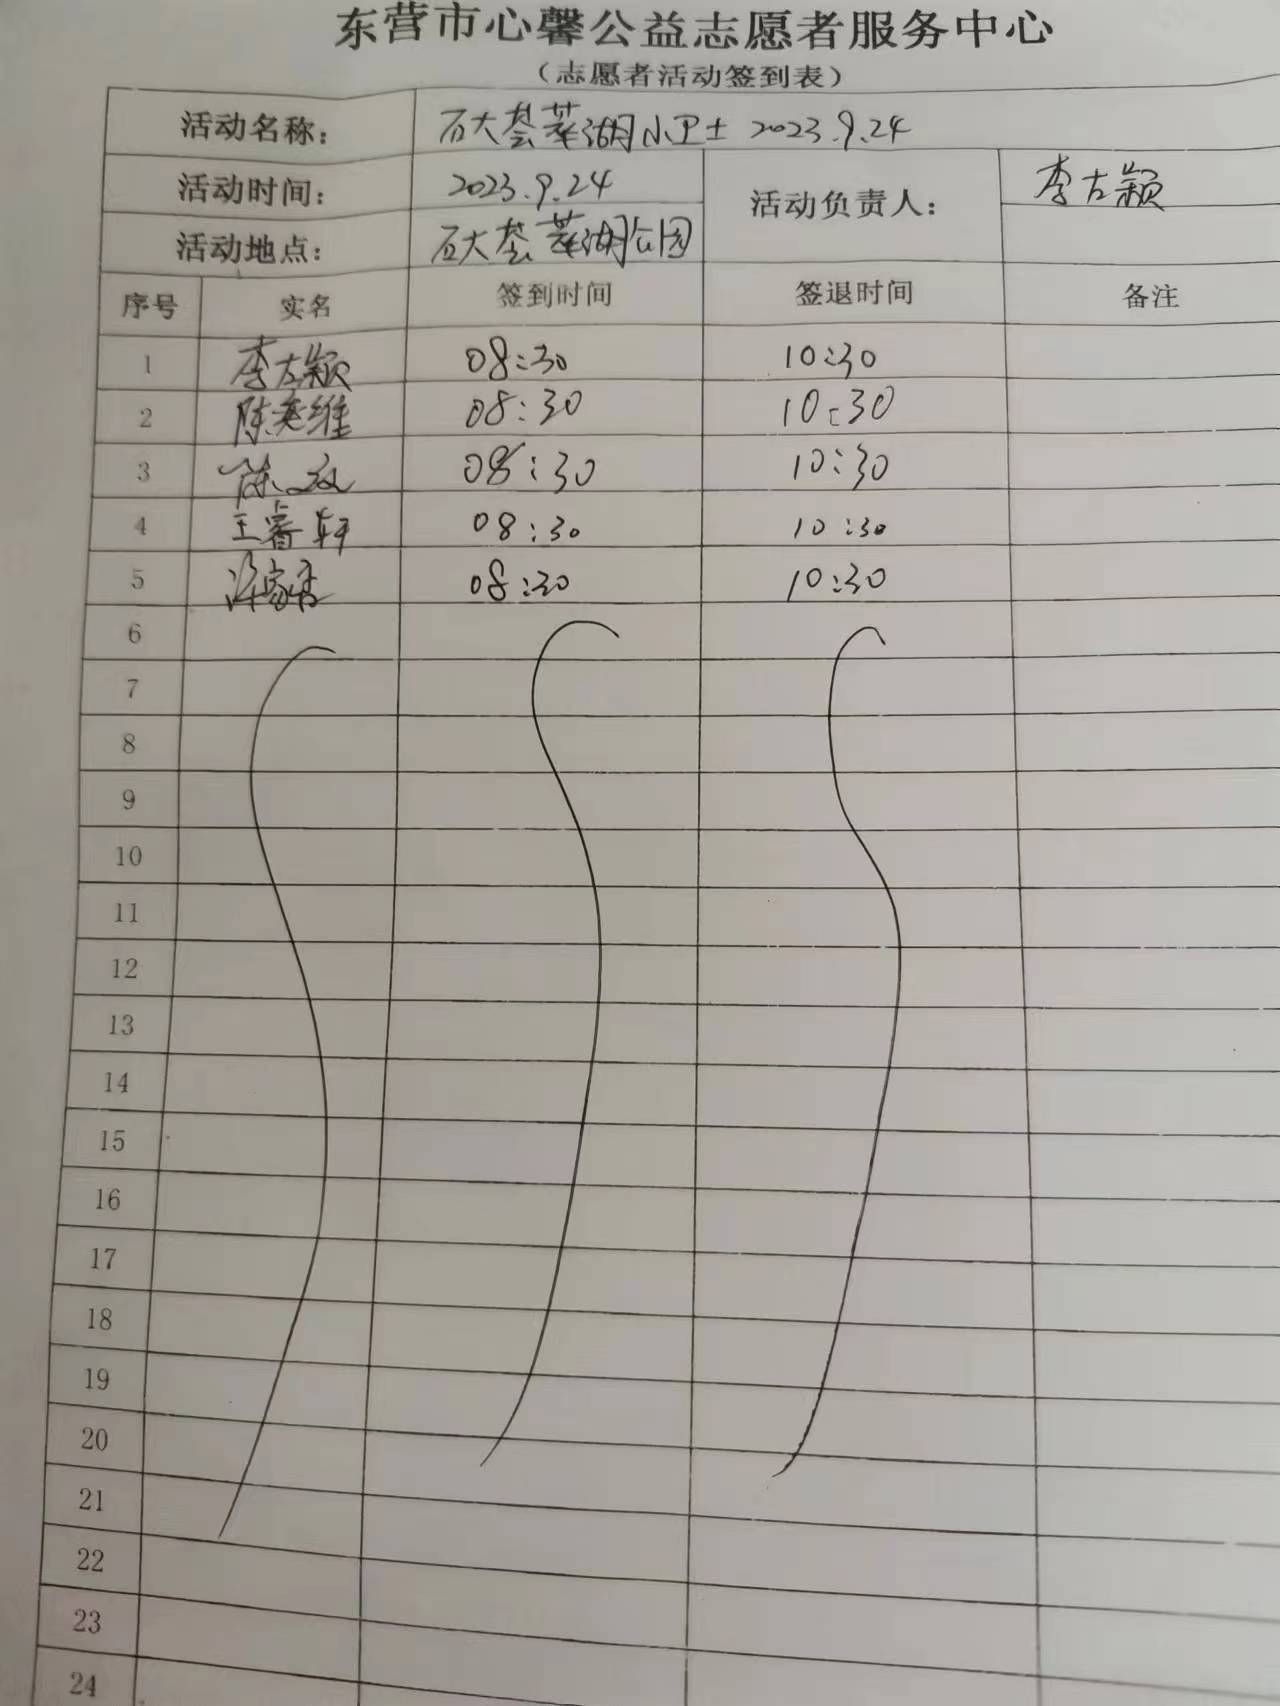 东营市心馨公益志愿者服务中心
（志愿者活动签到表）
活动名称： 石大荟萃湖小卫士 2023.9.24
活动时间： 2023.9.24 活动负责人： 李左颖
活动地点： 石大荟萃湖公园
序号 实名 签到时间 签退时间 备注
1 李左颖 08:30 10:30
2 陈英维 08:30 10:30
3 陈 08:30 10:30
4 王睿轩 08:30 10:30
5 08:30 10:30
6
7
8
9
10
11
12
13
14
15
16
17
18
19
20
21
22
23
24